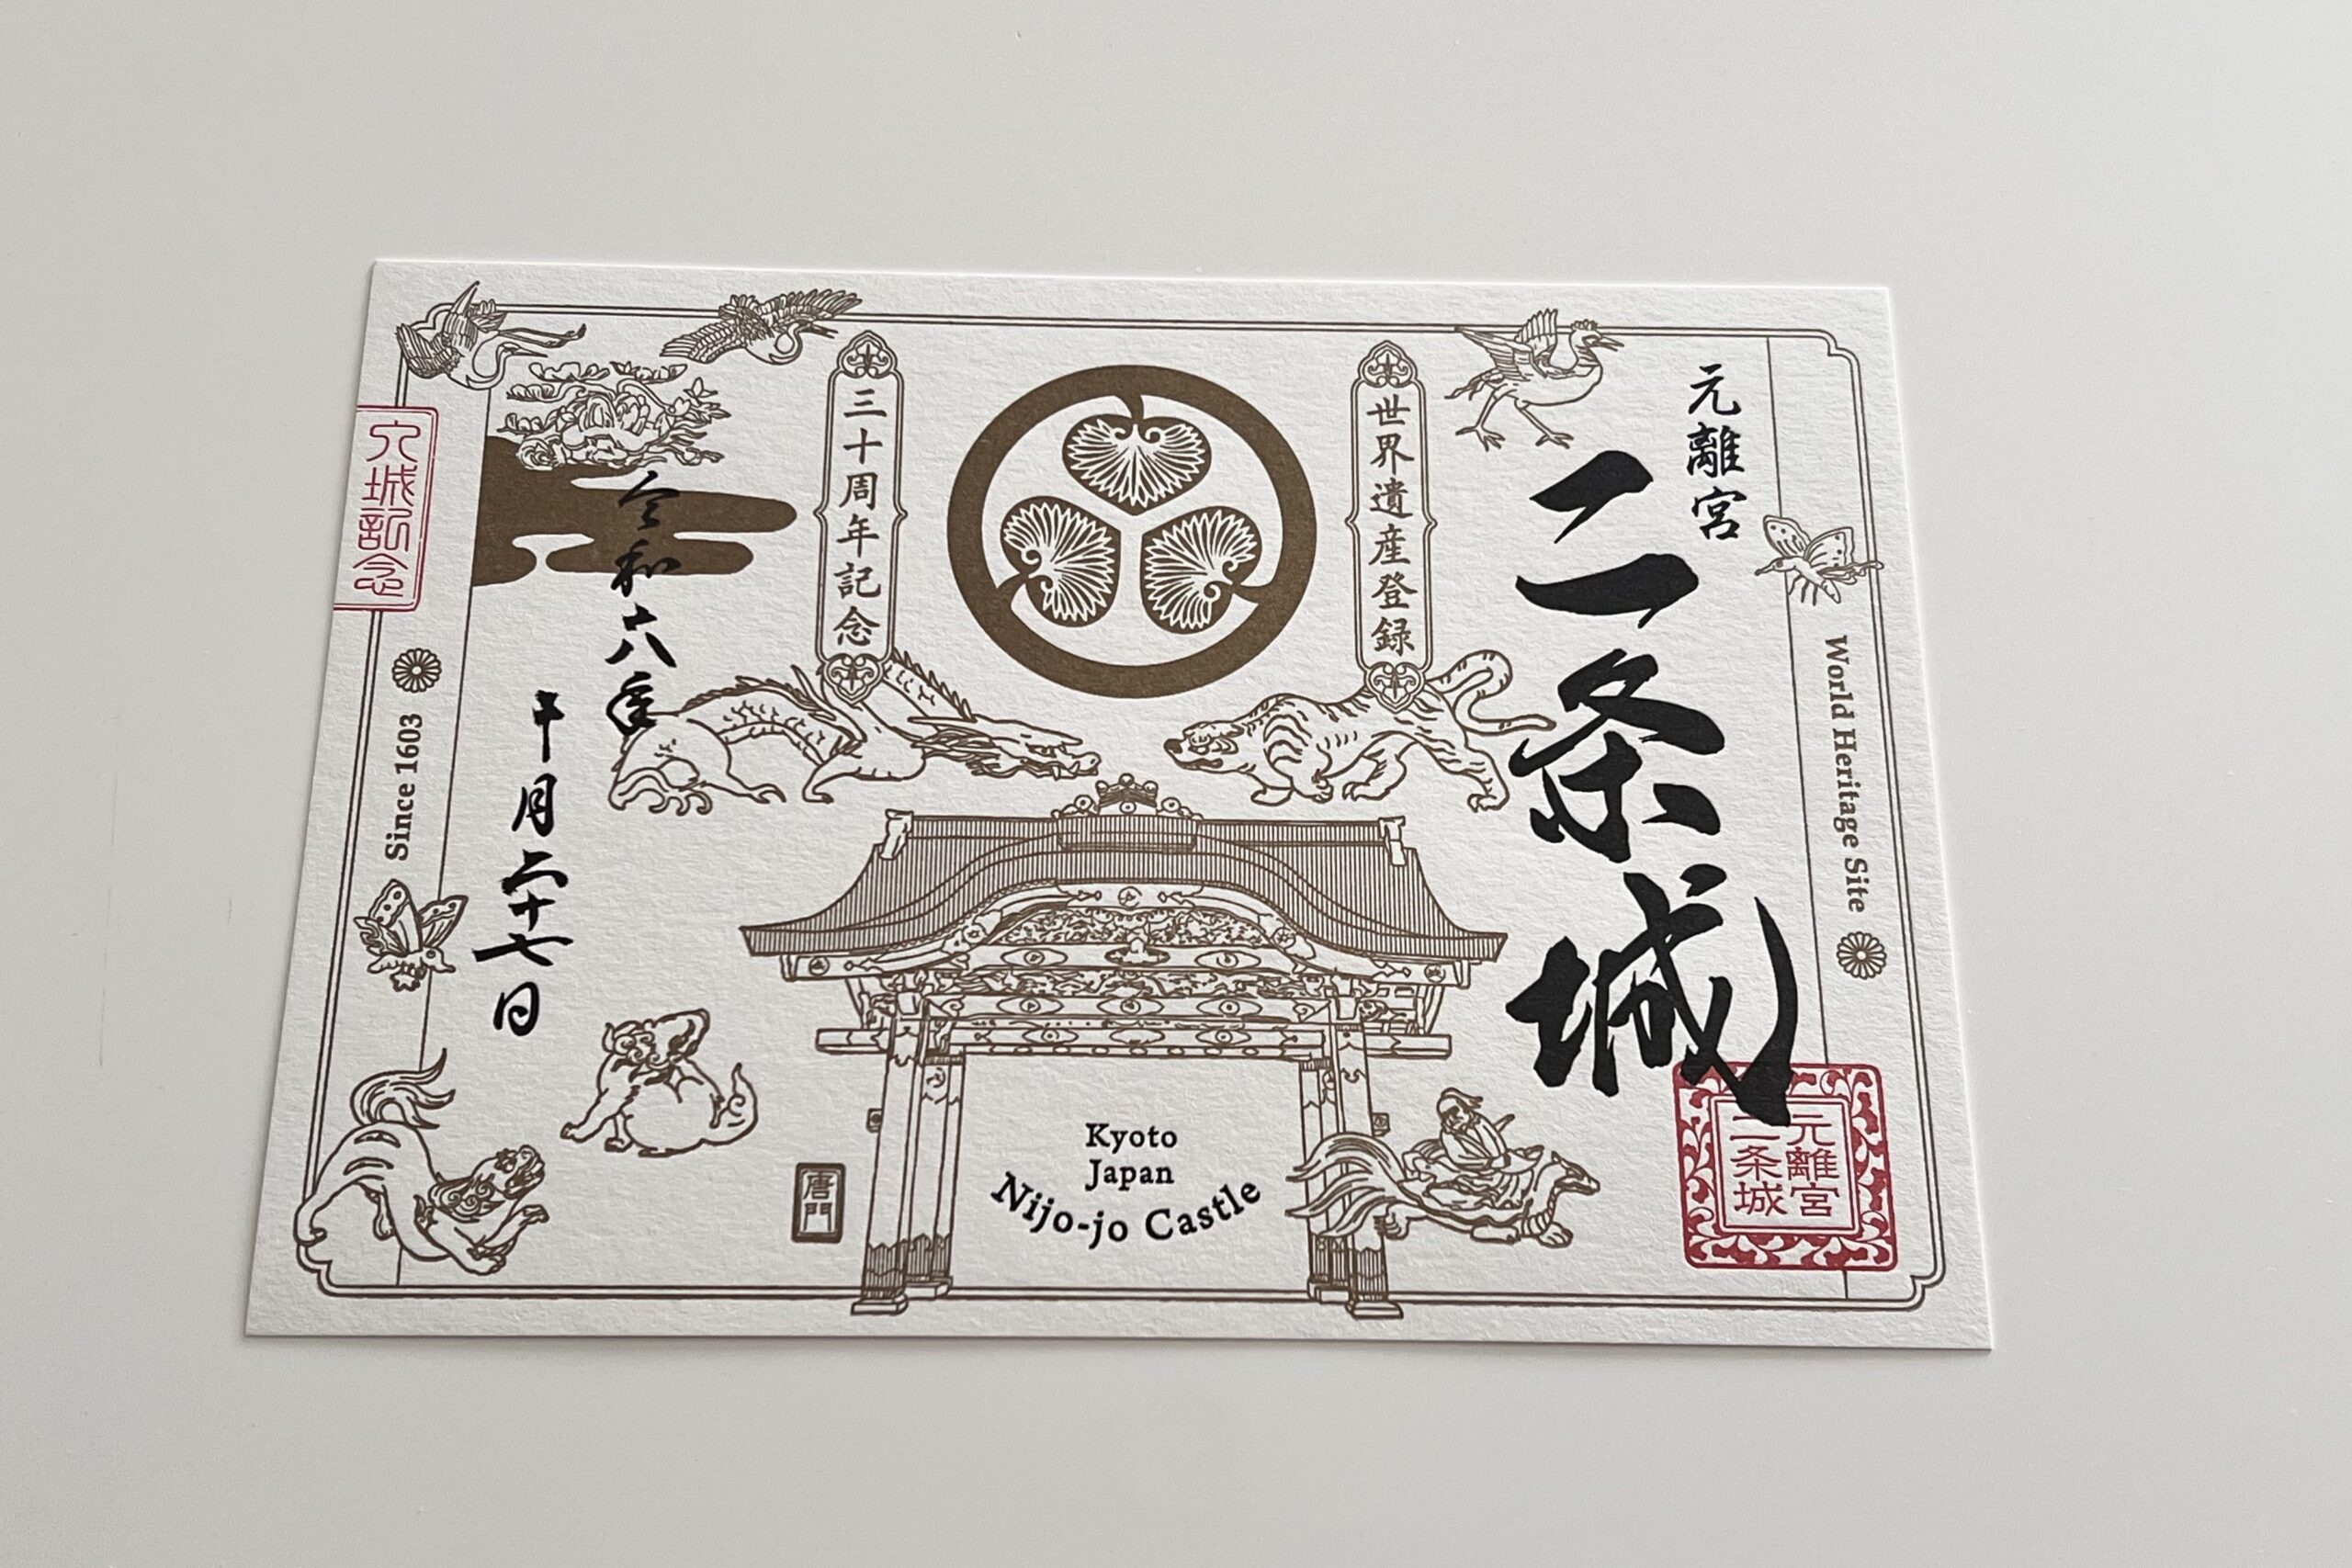 元離宮
二条城
World Heritage Site
世界遺産登録
三十周年記念
令和六年
十月二十七日
入城記念
Since 1603
唐門
Kyoto
Japan
Nijo-jo Castle
元離宮
二条城